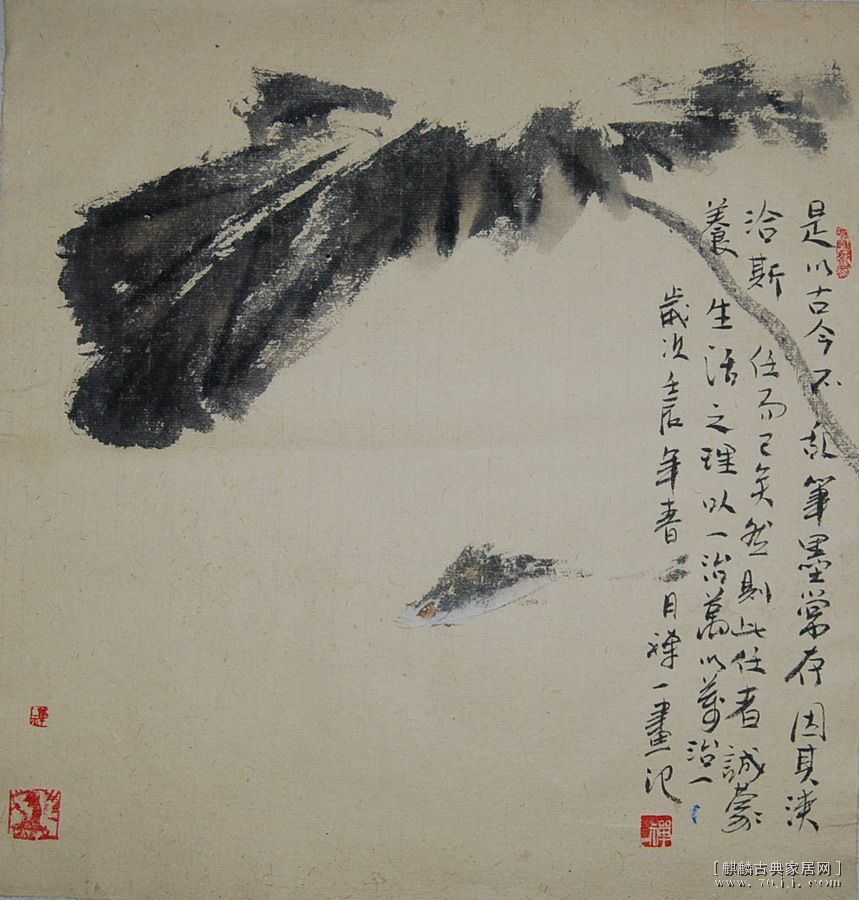 是以古今不乱筆墨常存因其浹
洽斯任而已矣然則此任者誠蒙
養生活之理以一治萬以萬治一
歲次壬辰年春二月禅一畫記
禪
[麒麟古典家居网]